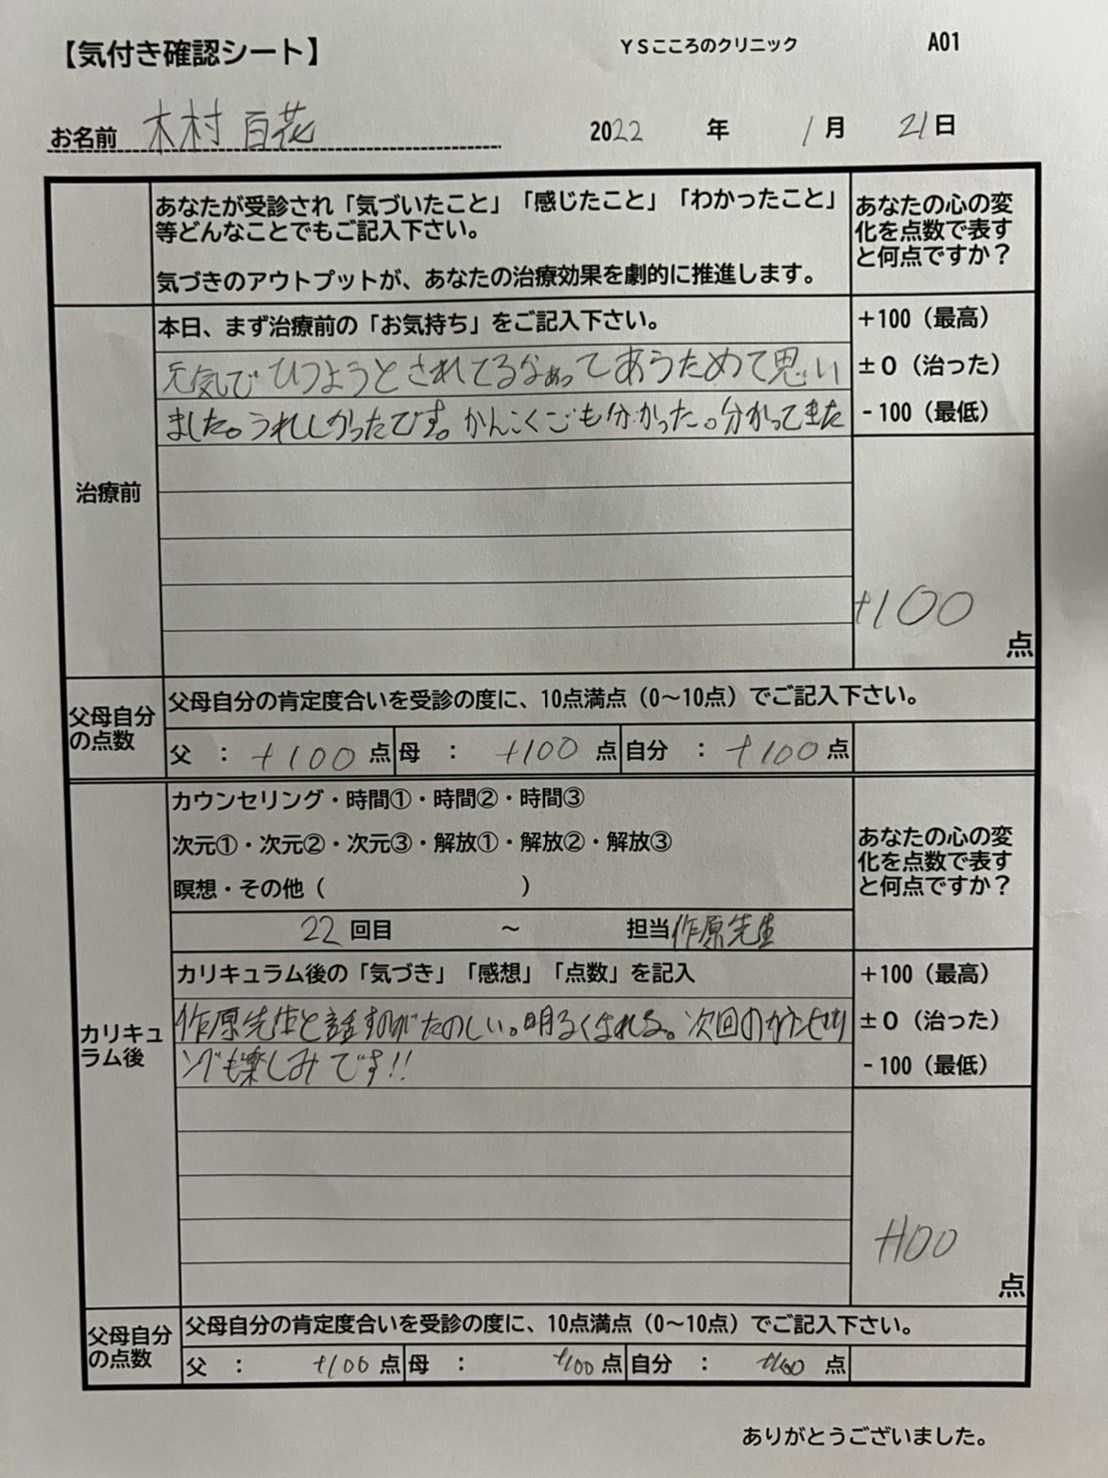 【気付き確認シート】 YSこころのクリニック A01
お名前 木村 百花 2022 年 1 月 21 日
あなたが受診され「気づいたこと」「感じたこと」「わかったこと」
等どんなことでもご記入下さい。
気づきのアウトプットが、あなたの治療効果を劇的に推進します。
あなたの心の変
化を点数で表す
と何点ですか？
治療前
本日、まず治療前の「お気持ち」をご記入下さい。
元気で ひつようとされてるなぁってあうためて思い
ました。うれしかったです。かんこくごも分かった。分かってきた
+100（最高）
±0（治った）
-100（最低）
+100
点
父母自分
の点数
父母自分の肯定度合いを受診の度に、10点満点（0～10点）でご記入下さい。
父 ： +100 点 母 ： +100 点 自分 ： +100 点
カリキュ
ラム後
カウンセリング・時間①・時間②・時間③
次元①・次元②・次元③・解放①・解放②・解放③
瞑想・その他（ ）
22 回目 ～ 担当 作原先生
あなたの心の変
化を点数で表す
と何点ですか？
カリキュラム後の「気づき」「感想」「点数」を記入
作原先生と話すのがたのしい。明るくなれる。次回のカウンセリ
ングも楽しみです!!
+100（最高）
±0（治った）
-100（最低）
+100
点
父母自分
の点数
父母自分の肯定度合いを受診の度に、10点満点（0～10点）でご記入下さい。
父 ： +100 点 母 ： +100 点 自分 ： +100 点
ありがとうございました。